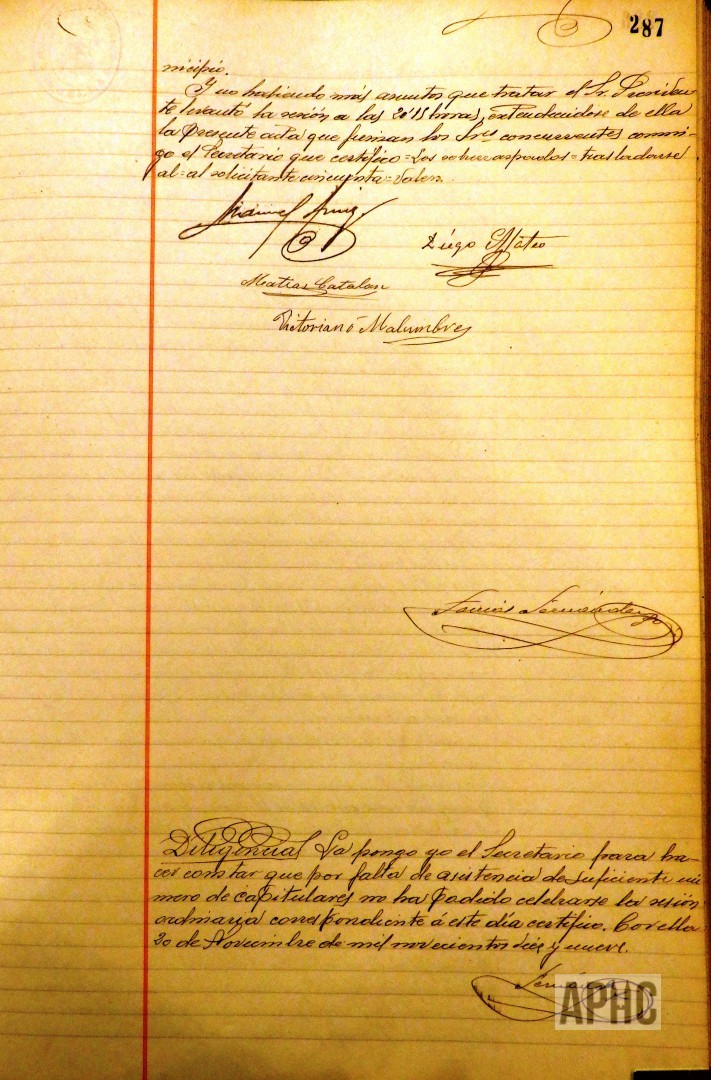 287
nicipio.
Y no habiendo más asuntos que tratar el Sr. Presiden
te levantó la sesión a las 20'15 horas, extendiendose de ella
la presente acta que firman los Sres concurrentes conmi-
go el Secretario que certifico = Los sobreraspados = trasladarse
al = al solicitante cincuenta = Valen.
Manuel
Diego Mateo
Matias Catalan
Victoriano Malumbres
Fernández
Diligencia La pongo yo el Secretario para ha-
cer constar que por falta de asistencia de suficiente nú
mero de capitulares no ha podido celebrarse la sesión
ordinaria correspondiente á este día certifico. Corella
20 de Noviembre de mil novecientos diez y nueve.
APHC